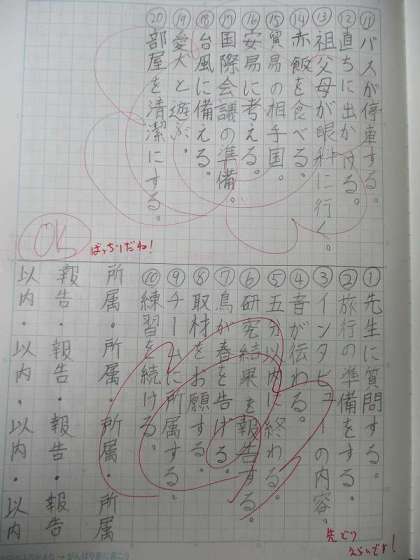 ①先生に質問する。
②旅行の準備をする。
③インタビューの内容。
④音が伝わる。
⑤五分以内に終わる。
⑥研究結果を報告する。
⑦鳥が春を告げる。
⑧取材をお願する。
⑨チームに所属する。
⑩練習を続ける。
所属・所属・所属・所属
報告・報告・報告・報告
以内・以内・以内・以内
先どり
えらいです!
⑪バスが停車する。
⑫直ちに出かける。
⑬祖父母が眼科に行く。
⑭赤飯を食べる。
⑮貿易の相手国。
⑯安易に考える。
⑰国際会議の準備。
⑱台風に備える。
⑲愛犬と遊ぶ。
⑳部屋を清潔にする。
OK
ばっちりだね!